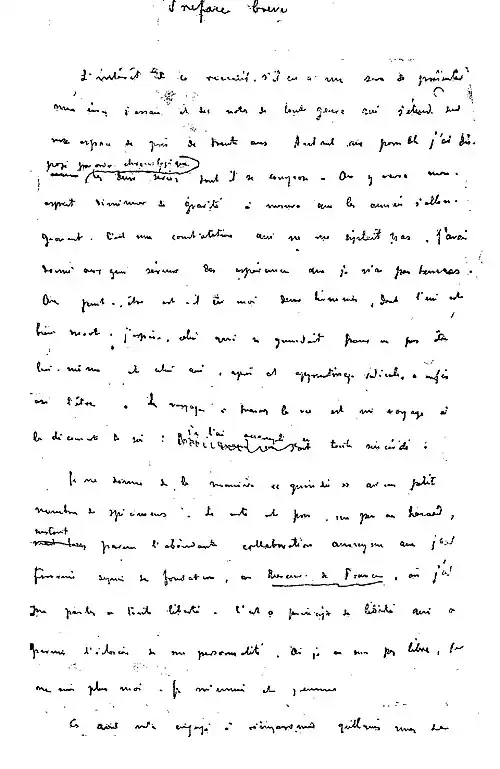 Préface brève
L'intérêt de ce recueil, s'il en a un, sera de présenter
des notes de tout genre qui s'étend sur
une espace de près de trente ans. Autant que possible j'ai dis-
posé par ordre chronologique
les deux séries dont il se compose. On y verra mon
esprit diminuer de gravité à mesure que les années s'allon-
geaient. C'est une constatation qui ne me déplaît pas. J'avais
donné aux gens sérieux des espérances que je n'ai pas tenues.
On peut-être est-il en moi deux hommes, dont l'un est
bien mort, j'espère, celui qui se guindait pour ne pas être
lui-même et celui qui, après cet apprentissage ridicule, a enfin
osé l'être. Le voyage à travers la vie est un voyage à
la découverte de soi : je l'ai accompli en toute sincérité :
Je ne donne de la manière « guindée » qu'un petit
nombre de spécimens. Le reste est pris, un peu au hasard,
surtout parmi l'abondante collaboration anonyme que j'ai
fournie depuis sa fondation, au Mercure de France, où j'ai
pu parler en toute liberté. C'est le principe de liberté qui a
permis l'éclosion de ma personnalité. Où je ne suis pas libre, je
ne suis plus moi. Je m'ennuie et j'ennuie
Ces aveux m'ont engagé à réimprimer quelques unes de